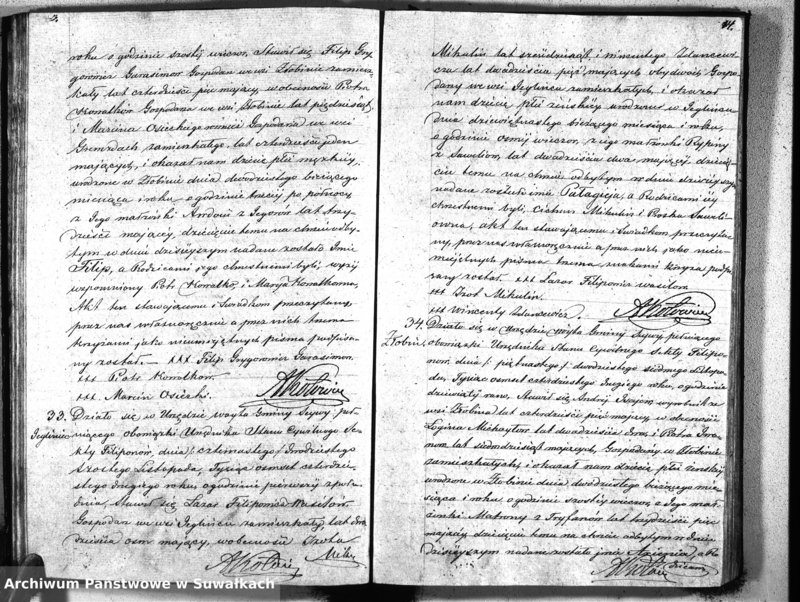 roku o godzinie szostej wieczor, Stawił się Filip Gry
gorowicz Garasimow Gospodarz we wsi Złobinie zamiesz
kały lat czterdzieści pięć mający, w obecności Piotra
Konałków Gospodarza we wsi Złobinie lat pięćdziesiąt,
i Marcina Osieckiego również Gospodarza we wsi
zamieszkałego, lat czterdzieści jeden
mających, i okazał nam dziecie płci męzkiej
urodzone w Złobinie dnia dwudziestego bieżącego
miesiąca i roku o godzinie trzeciej po północy
z Jego małżonki z Jegorów lat trzy
dzieści mającej, dziecięciu temu na chrzcie odby
tym w dniu dzisiejszym nadane zostało Imie
Filip, a Rodzicami Jego chrzestnemi byli, wyżej
wspomniony Piotr Konałko, i Marya Konałkowna.
Akt ten stawającemu i Świadkom przeczytany,
przez nas własnoręcznie a przez nich trzema
krzyżami jako nieumiejętnych pisma podpisa
ny został. — XXX Filip Grygorowicz Garasimow.
XXX Piotr Konałkow.
XXX Marcin Osiecki.
33. Działo się w Urzędzie Woyta Gminy peł
niącego obowiązki Urzędnika Stanu Cywilnego Se
kty Filiponów, dnia / czternastego / Dwudziestego
szostego Listopada, Tysiąc osmset czterdzie
stego drugiego roku, o godzinie pierwszej z połu
dnia, Stawił się Łazar Filiponowicz Wasilów.
Gospodarz we wsi zamieszkały, lat dwa
dzieścia osm mający, w obecności
Miku
4.
Mikulin lat sześćdziesiąt, i Wincentego Zdancewi
cza lat dwadzieścia pięć mających obydwóch Gospo
darzy we wsi zamieszkałych, i okazał
nam dziecię płci żeńskiej urodzone w
dnia dziewiętnastego bieżącego miesiąca i roku,
o godzinie osmej wieczor, z jego małżonki
z Sawelów, lat dwadzieścia dwa mającej dziecię
ciu temu na chrzcie odbytym w dniu dzisiejszym
nadane zostało imie Pałagieja, a Rodzicami jej
chrzestnemi byli, Mikulin i
owna, akt ten stawającemu i Świadkom przeczyta
ny, przez nas własnoręcznie a przez nich jako nieu
miejętnych pisma trzema znakami krzyża podpi
sany został. XXX Łazar Filiponów Wasilow.
XXX Mikulin.
XXX Wincenty Zdancewicz.
34. Działo się w Urzędzie Woyta Gminy pełniącego
Złobin
obowiązki Urzędnika Stanu Cywilnego Sekty Filipo
now, dnia / piętnastego / dwudziestego siodmego Listopa
da, Tysiąc osmset czterdziestego drugiego roku, o godzinie
dziewiątej rano, Stawił się Andrzej wyrobnik ze
wsi Złobina lat czterdzieści pięć mający w obecności
Łogina Michayłow lat dwadzieścia dwa, i Piotra
now lat siedmdziesiąt mających, Gospodarzy w Złobinie
zamieszkałych i okazał nam dziecie płci żeńskiej
urodzone w Złobinie dnia dwudziestego bieżącego mie
siąca i roku o godzinie szostej wieczor, z Jego mał
żonki Matrony z Tryfanów lat trzydzieści pięć
mającej dziecięciu temu na chrzcie odbytym w dniu
dzisiejszym nadane zostało imie a Ro
dzicami
Archiwum Państwowe w Suwałkach